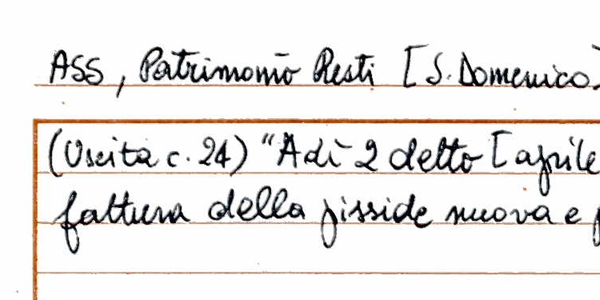 ASS, Patrimonio Resti [S. Domenico]
(Uscita c. 24) "Adì 2 detto [aprile
fattura della pisside nuova e